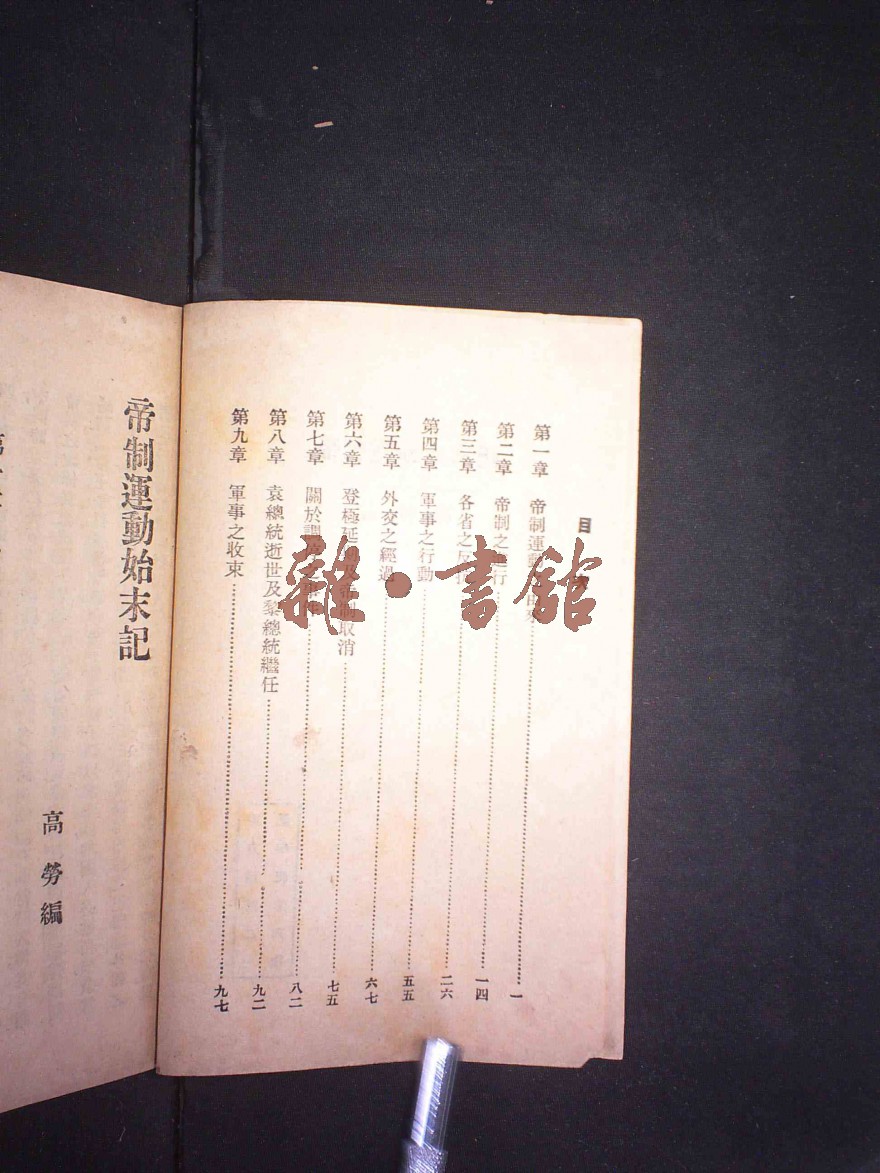 目
第一章 帝制運動一
第二章 帝制之行一四
第三章 各省之反二六
第四章 軍事之行動五五
第五章 外交之經過六七
第六章 登極延及帝制取消七五
第七章 關於調八二
第八章 袁總統逝世及黎總統繼任九二
第九章 軍事之收束九七
帝制運動始末記
高勞編
雜·書館